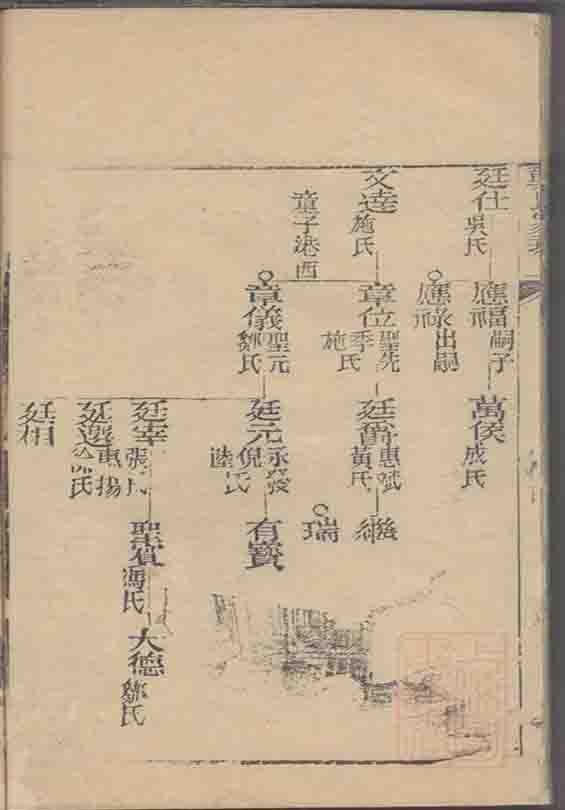 廷仕
吳氏
應福
嗣子
應祿
出嗣
萬侯
成氏
文達
施氏
童子港西
章位
聖先
季氏
施氏
廷爵
惠斌
黃氏
繼
瑞
章儀
聖元
鄒氏
廷元
永發
倪氏
陸氏
有寶
廷宰
張氏
聖質
馮氏
大德
鄒氏
廷選
惠揚
氏
廷相